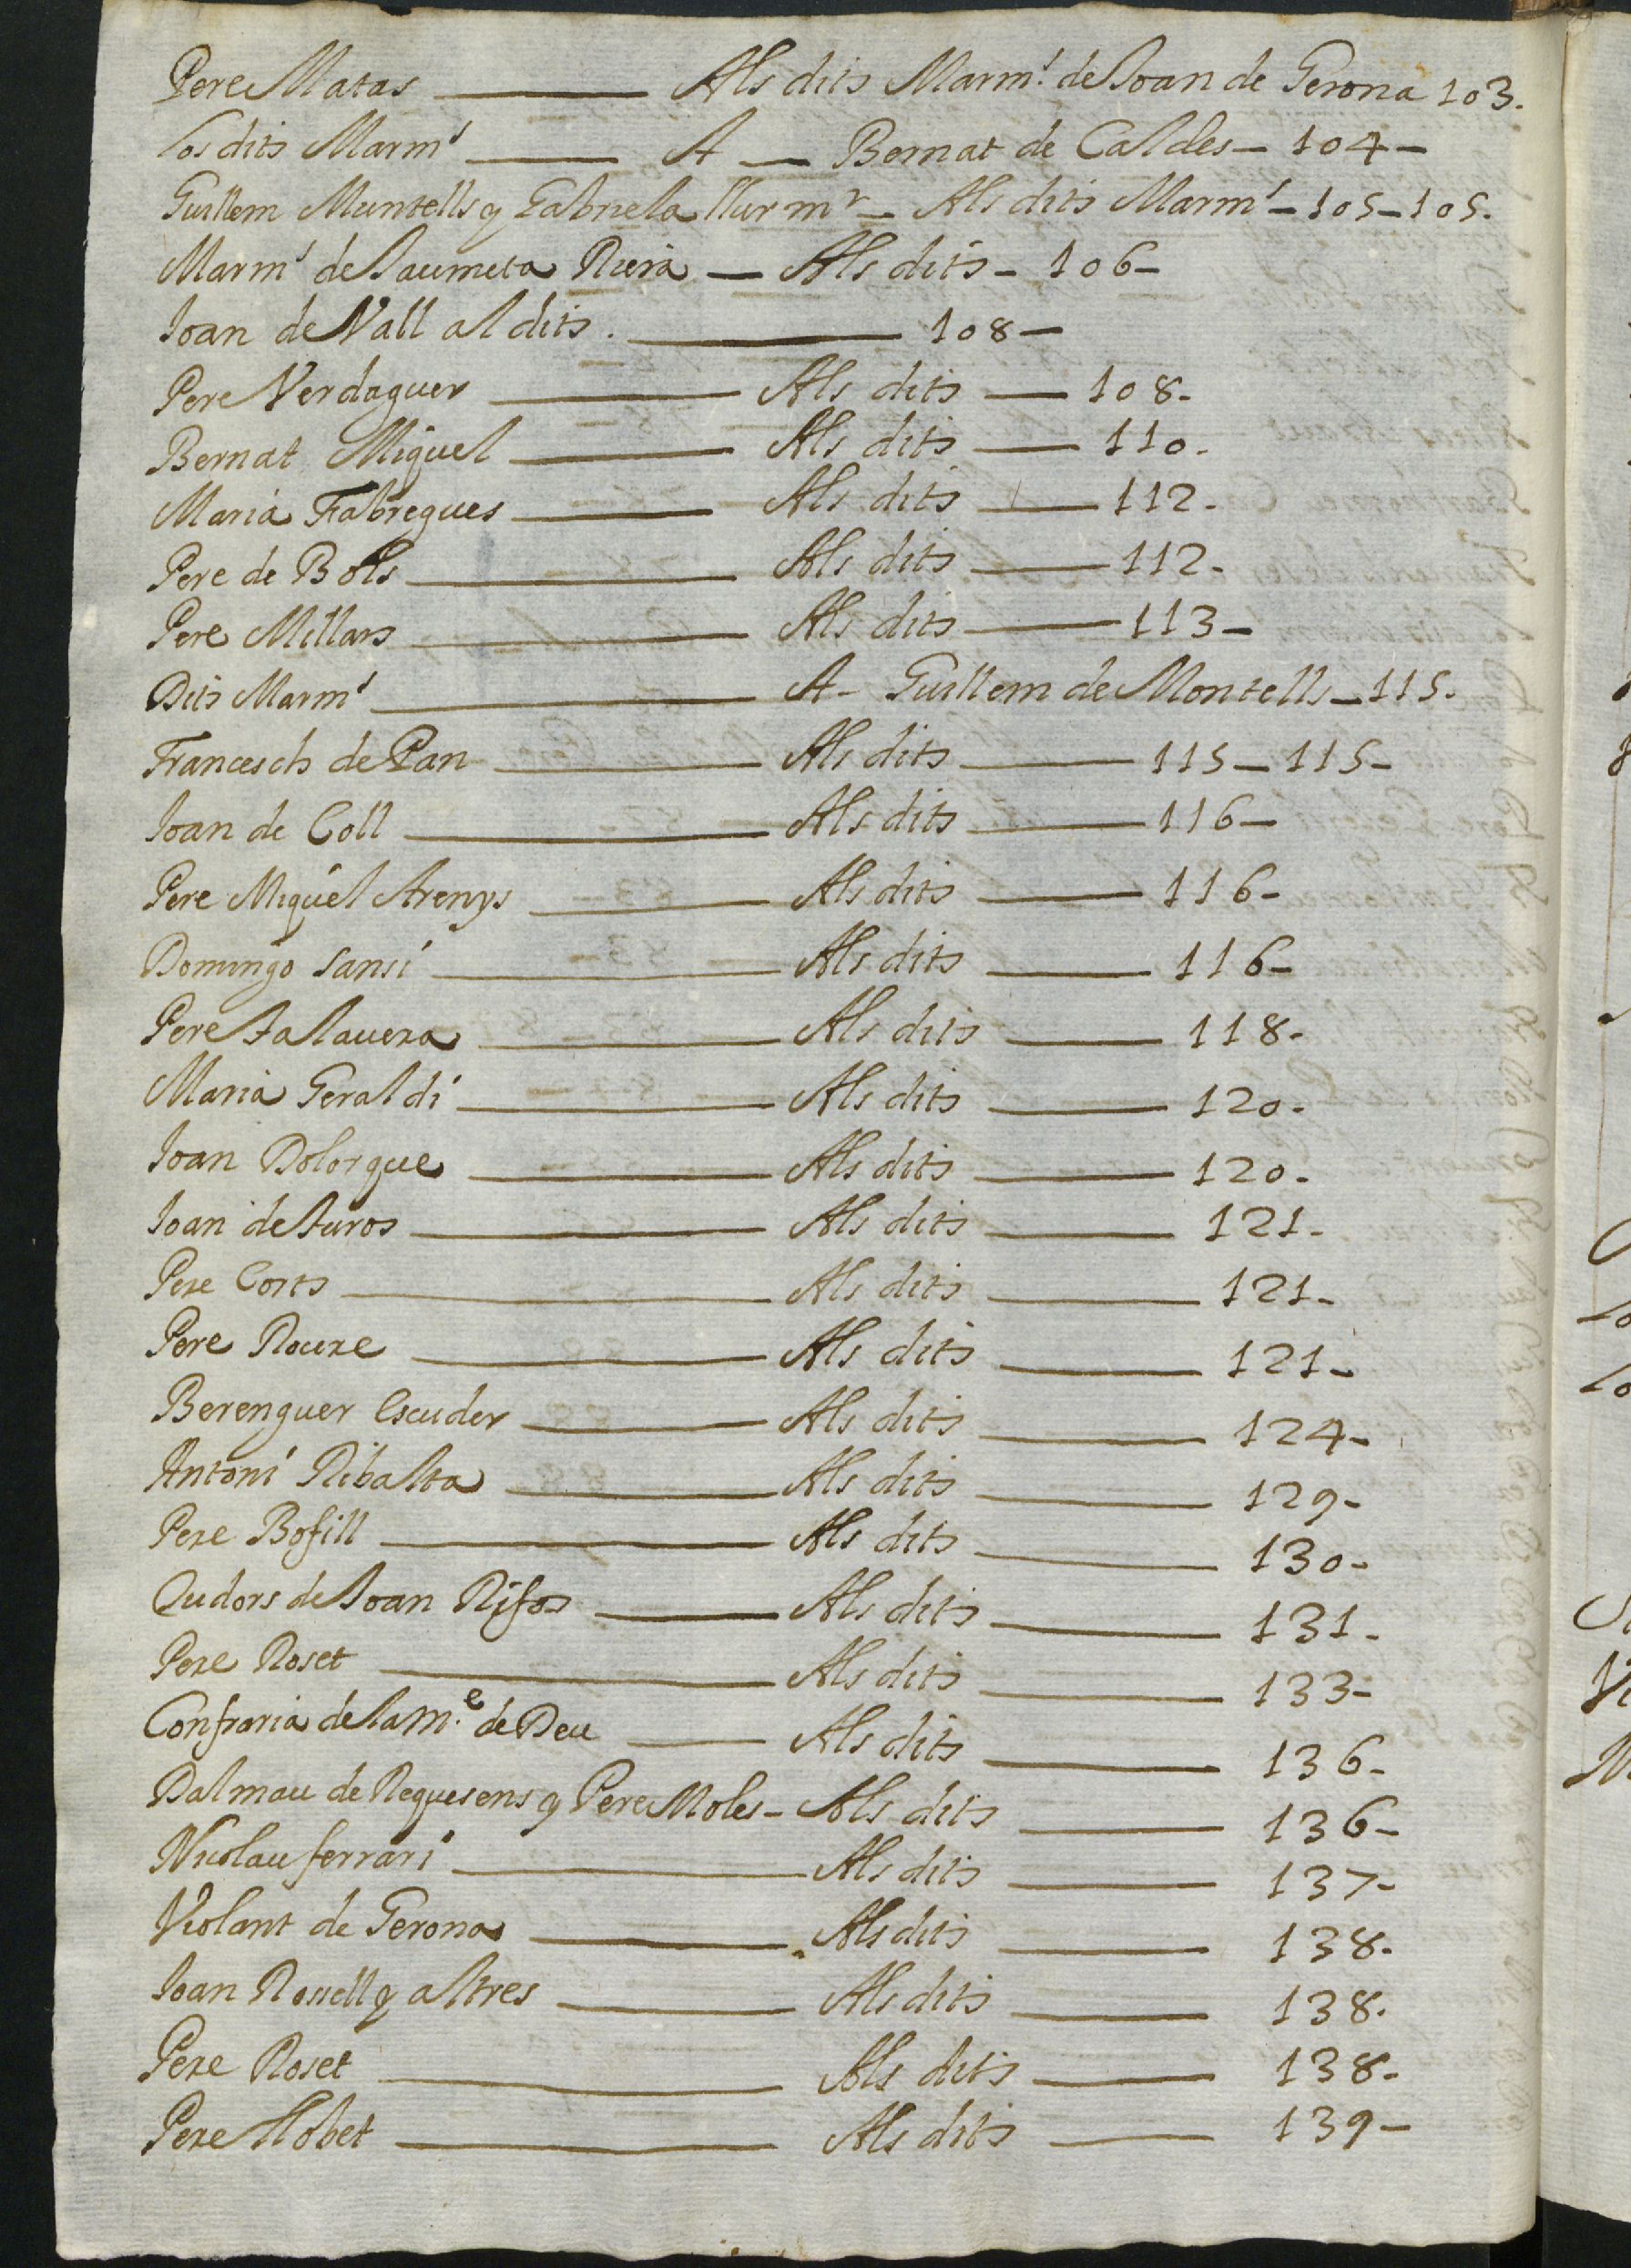 Pere Matas — Als dits Marm.s de Joan de Gerona 103.
Los dits Marm.s — A — Bernat de Caldes — 104 —
Guillem Muntells y Gabriela llur mr — Als dits Marm.s — 105 — 105.
Marm.s de Jaumeta Riera — Als dits — 106 —
Joan de Vall al dits. — 108 —
Pere Verdaguer — Als dits — 108 -
Bernat Miguel — Als dits — 110 -
Maria Fabregues — Als dits — 112 -
Pere de Bols — Als dits — 112 -
Pere Millars — Als dits — 113 -
Dits Marm.s — A - Guillem de Montells — 115.
Francesch de Pan — Als dits — 115 — 115 -
Joan de Coll — Als dits — 116 —
Pere Miquel Arenys — Als dits — 116 -
Domingo Sansi — Als dits — 116 -
Pere Talavera — Als dits — 118 -
Maria Geraldi — Als dits — 120 -
Joan Dolorgue — Als dits — 120 -
Joan de Juros — Als dits — 121 -
Pere Corts — Als dits — 121 -
Pere Roure — Als dits — 121 -
Berenguer Escuder — Als dits — 124 -
Antoni Ribalta — Als dits — 129 -
Pere Bofill — Als dits — 130 -
Cudors de Joan Rifos — Als dits — 131 -
Pere Roset — Als dits — 133 -
Confraria de la M.e de Deu — Als dits — 136 -
Dalmau de Requesens y Pere Moles - Als dits — 136 -
Nicolau ferrari — Als dits — 137 -
Violant de Gerona — Als dits — 138 -
Joan Rossell y altres — Als dits — 138 -
Pere Roset — Als dits — 138 -
Pere Llobet — Als dits — 139 —